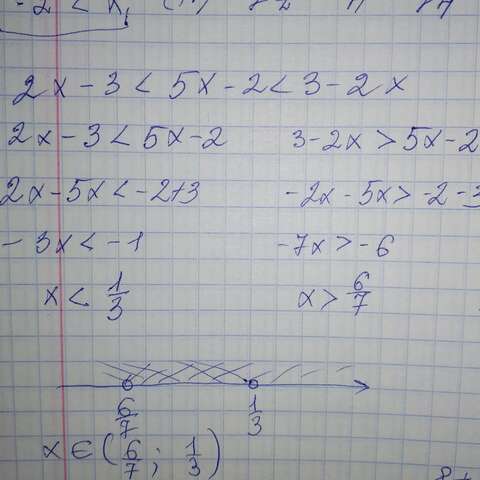 -2 < x
2x - 3 < 5x - 2 < 3 - 2x
2x - 3 < 5x - 2
3 - 2x > 5x - 2
2x - 5x < -2 + 3
-2x - 5x > -2 - 3
- 3x < -1
-7x > -6
x < 1/3
x > 6/7
6/7
1/3
x ∈ (6/7; 1/3)